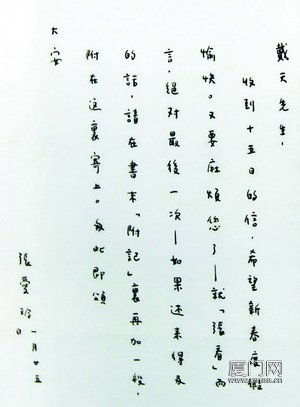 戴天先生，
收到十五日的信，希望新春度假
愉快。又要麻煩您了—就「張看」而
言，絕对最後一次—如果还來得及
的話，請在書末「附記」裏再加一段，
附在這裏寄上。匆此即頌
大安
張愛玲 一月廿五日
厦门网